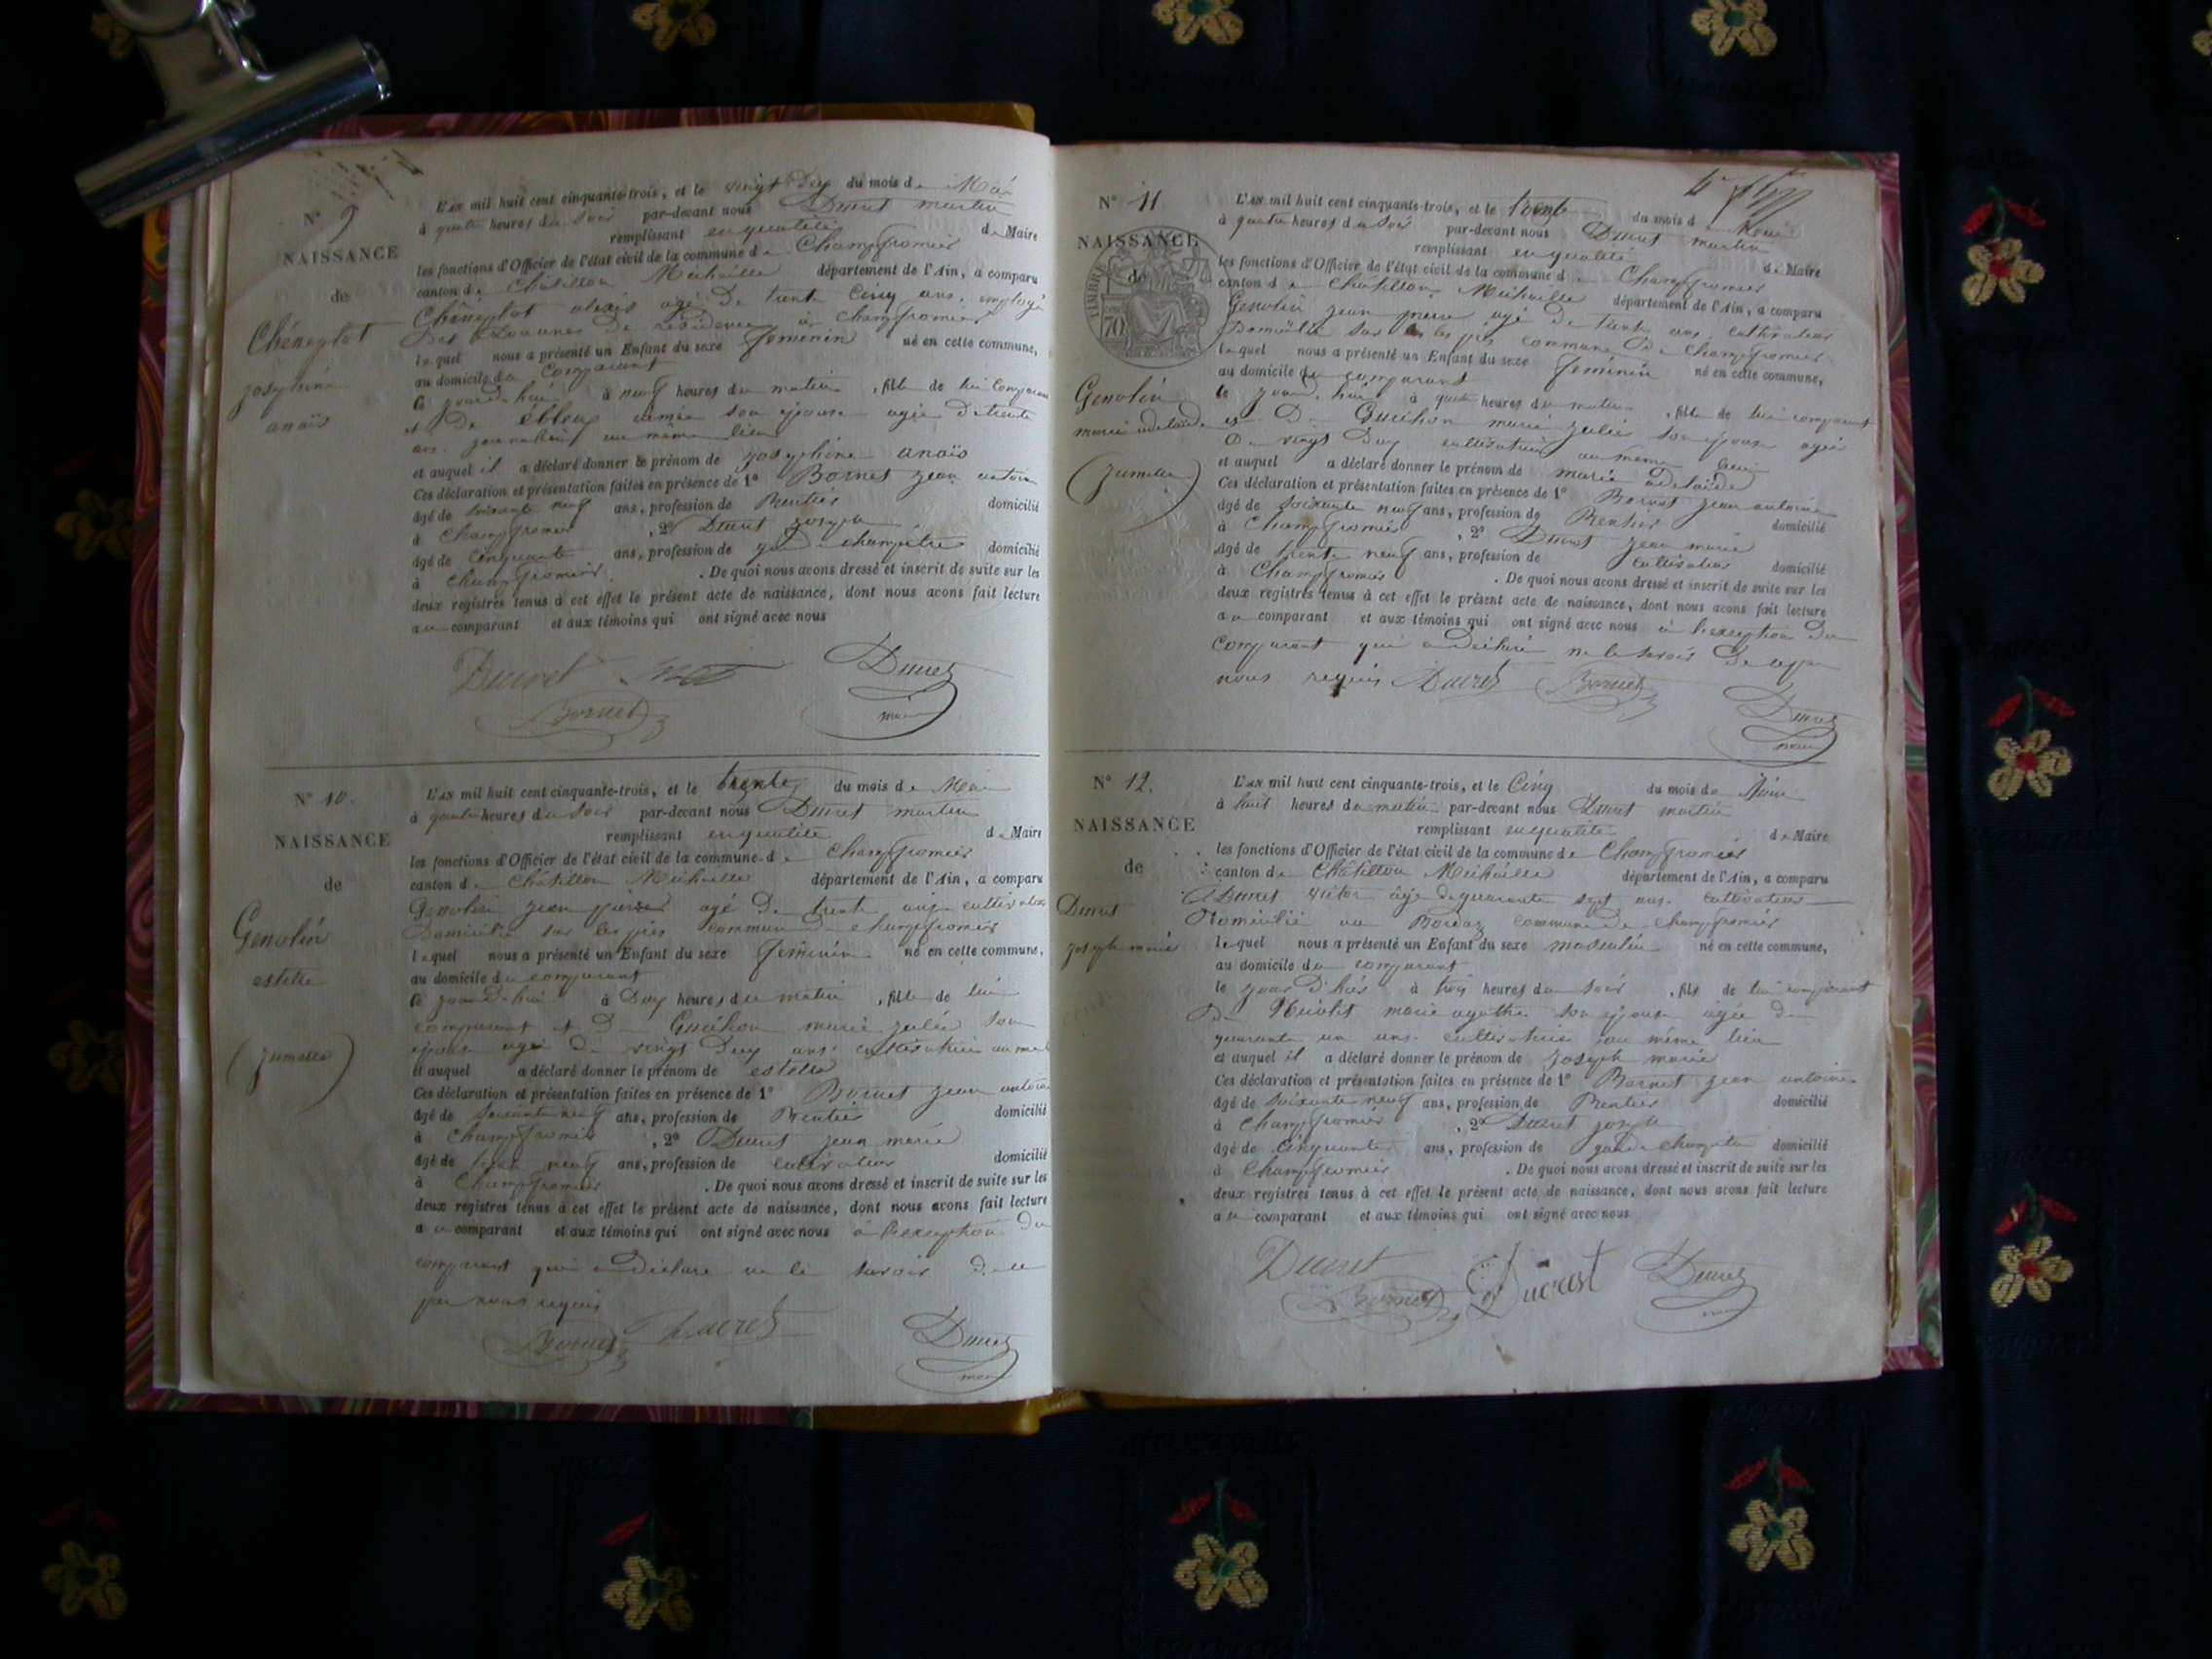 N° 9
NAISSANCE
de
Chéneplot
josephine
anaïs
L'AN mil huit cent cinquante-trois, et le vingt du mois de Mai
à quatre heures du soir par-devant nous Ducret martin
remplissant en qualité de Maire
les fonctions d'Officier de l'état civil de la commune de Champfromier
canton de Châtillon Michaille département de l'Ain, a comparu
Chéneplot alexis agé de trente cinq ans, employé
des Douanes de résidence à Champfromier
lequel nous a présenté un Enfant du sexe feminin né en cette commune,
au domicile du comparant
ce jourd'hui à neuf heures du matin, fille de lui comparant
et De aimée son épouse agée de trente
ans au même lieu
et auquel il a déclaré donner le prénom de josephine anaïs
Ces déclaration et présentation faites en présence de 1° Bornet jean antoine
âgé de soixante neuf ans, profession de Rentier domicilié
à Champfromier, 2° Ducret joseph
âgé de cinquante ans, profession de garde champêtre domicilié
à Champfromier. De quoi nous avons dressé et inscrit de suite sur les
deux registres tenus à cet effet le présent acte de naissance, dont nous avons fait lecture
au comparant et aux témoins qui ont signé avec nous
Ducret Ducret
Bornet maire
N° 10.
NAISSANCE
de
Genolin
estelle
(jumelle)
L'AN mil huit cent cinquante-trois, et le trente du mois de Mai
à quatre heures du soir par-devant nous Ducret martin
remplissant en qualité de Maire
les fonctions d'Officier de l'état civil de la commune de Champfromier
canton de Châtillon Michaille département de l'Ain, a comparu
Genolin jean pierre agé de trente ans cultivateur
Domicilié sur les prés commune de champfromier
lequel nous a présenté un Enfant du sexe feminin né en cette commune,
au domicile du comparant
ce jourd'hui à Deux heures du matin, fille de lui
comparant et De Guichon marie julie son
épouse agée de vingt Deux ans cultivatrice au même
et auquel a déclaré donner le prénom de estelle
Ces déclaration et présentation faites en présence de 1° Bornet jean antoine
âgé de soixante neuf ans, profession de Rentier domicilié
à Champfromier, 2° Ducret jean marie
âgé de trente neuf ans, profession de cultivateur domicilié
à Champfromier. De quoi nous avons dressé et inscrit de suite sur les
deux registres tenus à cet effet le présent acte de naissance, dont nous avons fait lecture
au comparant et aux témoins qui ont signé avec nous à l'exception du
comparant qui a Déclaré ne le savoir de ce
par nous requis
Bornet Ducret Ducret
maire
N° 11
NAISSANCE
de
TIMBRE
70
Genolin
marie adelaïde
(jumelle)
L'AN mil huit cent cinquante-trois, et le trente du mois de Mai
à quatre heures du soir par-devant nous Ducret martin
remplissant en qualité de Maire
les fonctions d'Officier de l'état civil de la commune de Champfromier
canton de Châtillon Michaille département de l'Ain, a comparu
Genolin jean pierre agé de trente ans, cultivateur
Domicilié sur les prés commune de Champfromier
lequel nous a présenté un Enfant du sexe féminin né en cette commune,
au domicile du comparant
ce jourd'hui à quatre heures du matin, fille de lui comparant
et De Guichon marie julie son épouse agée
De vingt Deux cultivatrice au même lieu
et auquel a déclaré donner le prénom de marie adelaïde
Ces déclaration et présentation faites en présence de 1° Bornet jean antoine
âgé de soixante neuf ans, profession de Rentier domicilié
à Champfromier, 2° Ducret jean marie
âgé de trente neuf ans, profession de cultivateur domicilié
à Champfromier. De quoi nous avons dressé et inscrit de suite sur les
deux registres tenus à cet effet le présent acte de naissance, dont nous avons fait lecture
au comparant et aux témoins qui ont signé avec nous à l'exception du
comparant qui a Déclaré ne le savoir de ce par
nous requis Ducret Bornet
Ducret
maire
N° 12.
NAISSANCE
de
Ducret
joseph marie
L'AN mil huit cent cinquante-trois, et le Cinq du mois de Juin
à huit heures du matin par-devant nous Ducret martin
remplissant en qualité de Maire
les fonctions d'Officier de l'état civil de la commune de Champfromier
canton de Châtillon Michaille département de l'Ain, a comparu
Ducret victor âgé de quarante sept ans cultivateur
Domicilié au commune de champfromier
lequel nous a présenté un Enfant du sexe masculin né en cette commune,
au domicile du comparant
le jour d'hier à trois heures du soir, fils de lui comparant
De marie agathe son épouse agée de
quarante un ans cultivatrice au même lieu
et auquel il a déclaré donner le prénom de joseph marie
Ces déclaration et présentation faites en présence de 1° Bornet jean antoine
âgé de soixante neuf ans, profession de Rentier domicilié
à Champfromier, 2° Ducret joseph
âgé de Cinquante ans, profession de garde champêtre domicilié
à Champfromier. De quoi nous avons dressé et inscrit de suite sur les
deux registres tenus à cet effet le présent acte de naissance, dont nous avons fait lecture
au comparant et aux témoins qui ont signé avec nous
Ducret Bornet Ducret Ducret